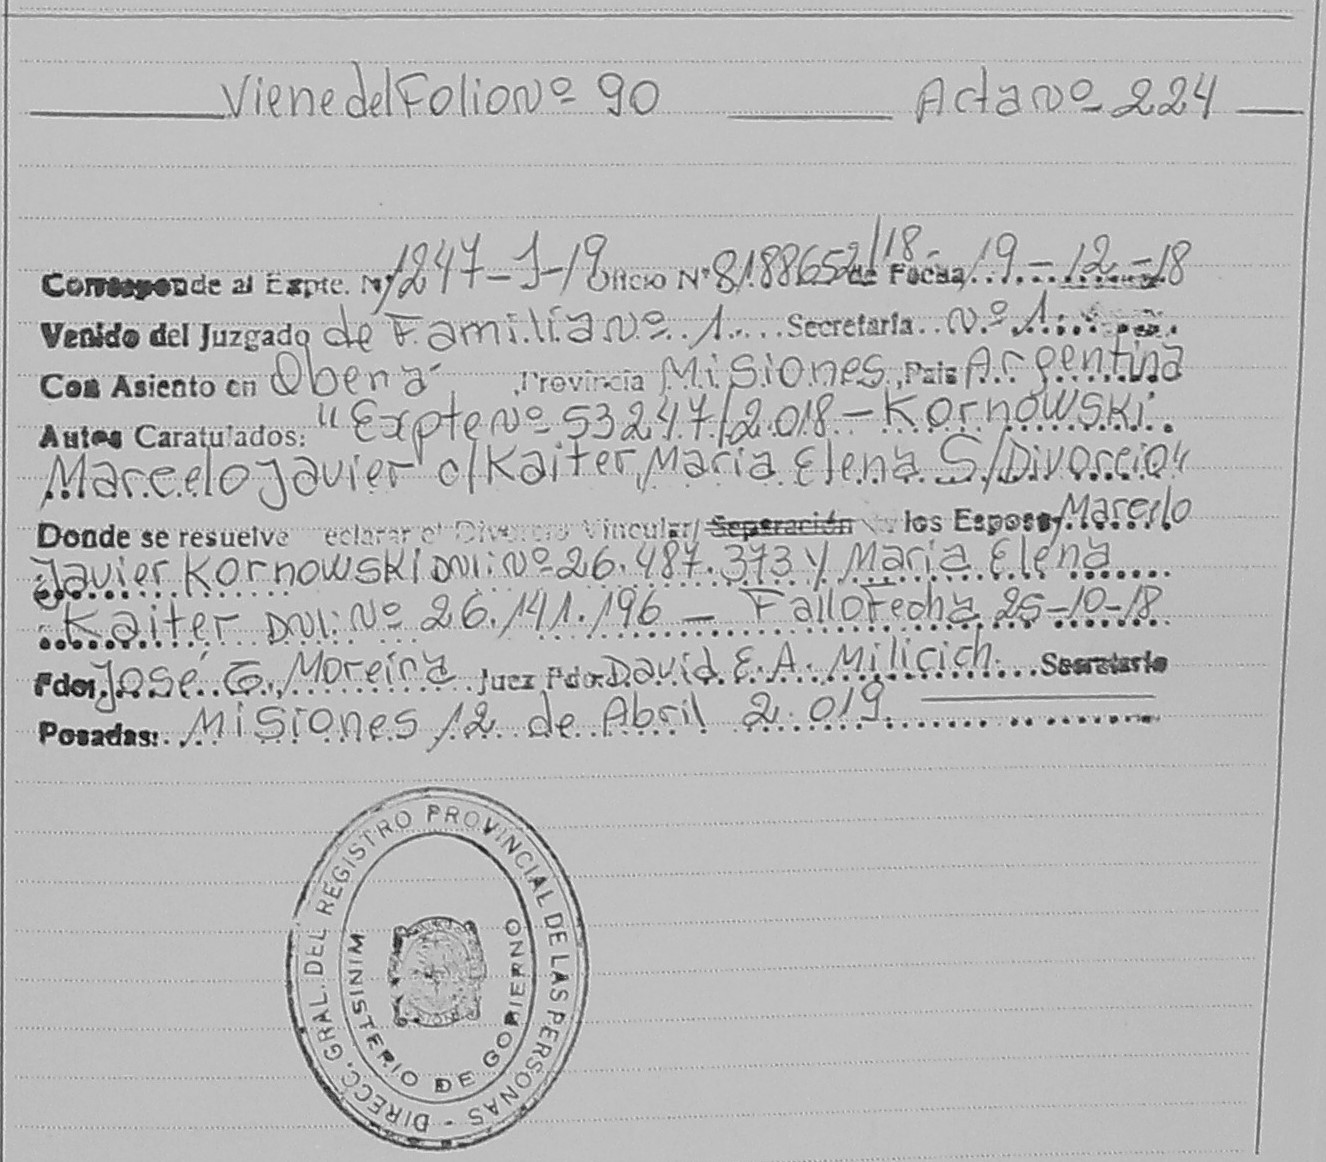 Viene del Folio Nº 90 Acta Nº 224
Corresponde al Expte. Nº 1247-J-19 Oficio Nº 8188652/18 de Fecha 19-12-18
Venido del Juzgado de Familia Nº 1 Secretaría Nº 1
Con Asiento en Oberá, Provincia Misiones, Pais Argentina
Autos Caratulados: "Expte Nº 53247/2018 - Kornowski
Marcelo Javier c/ Kaiter, María Elena S/Divorcio"
Donde se resuelve eclarar el Divorcio Vincular/ Separación los Esposos Marcelo
Javier Kornowski DNI: Nº 26.487.373 y María Elena
Kaiter DNI: Nº 26.141.196 - Fallo Fecha 25-10-18
Fdo: José G. Moreira Juez Fdo: David E. A. Milicich Secretario
Posadas: Misiones 12 de Abril 2.019
DIRECC. GRAL. DEL REGISTRO PROVINCIAL DE LAS PERSONAS -
MINISTERIO DE GOBIERNO